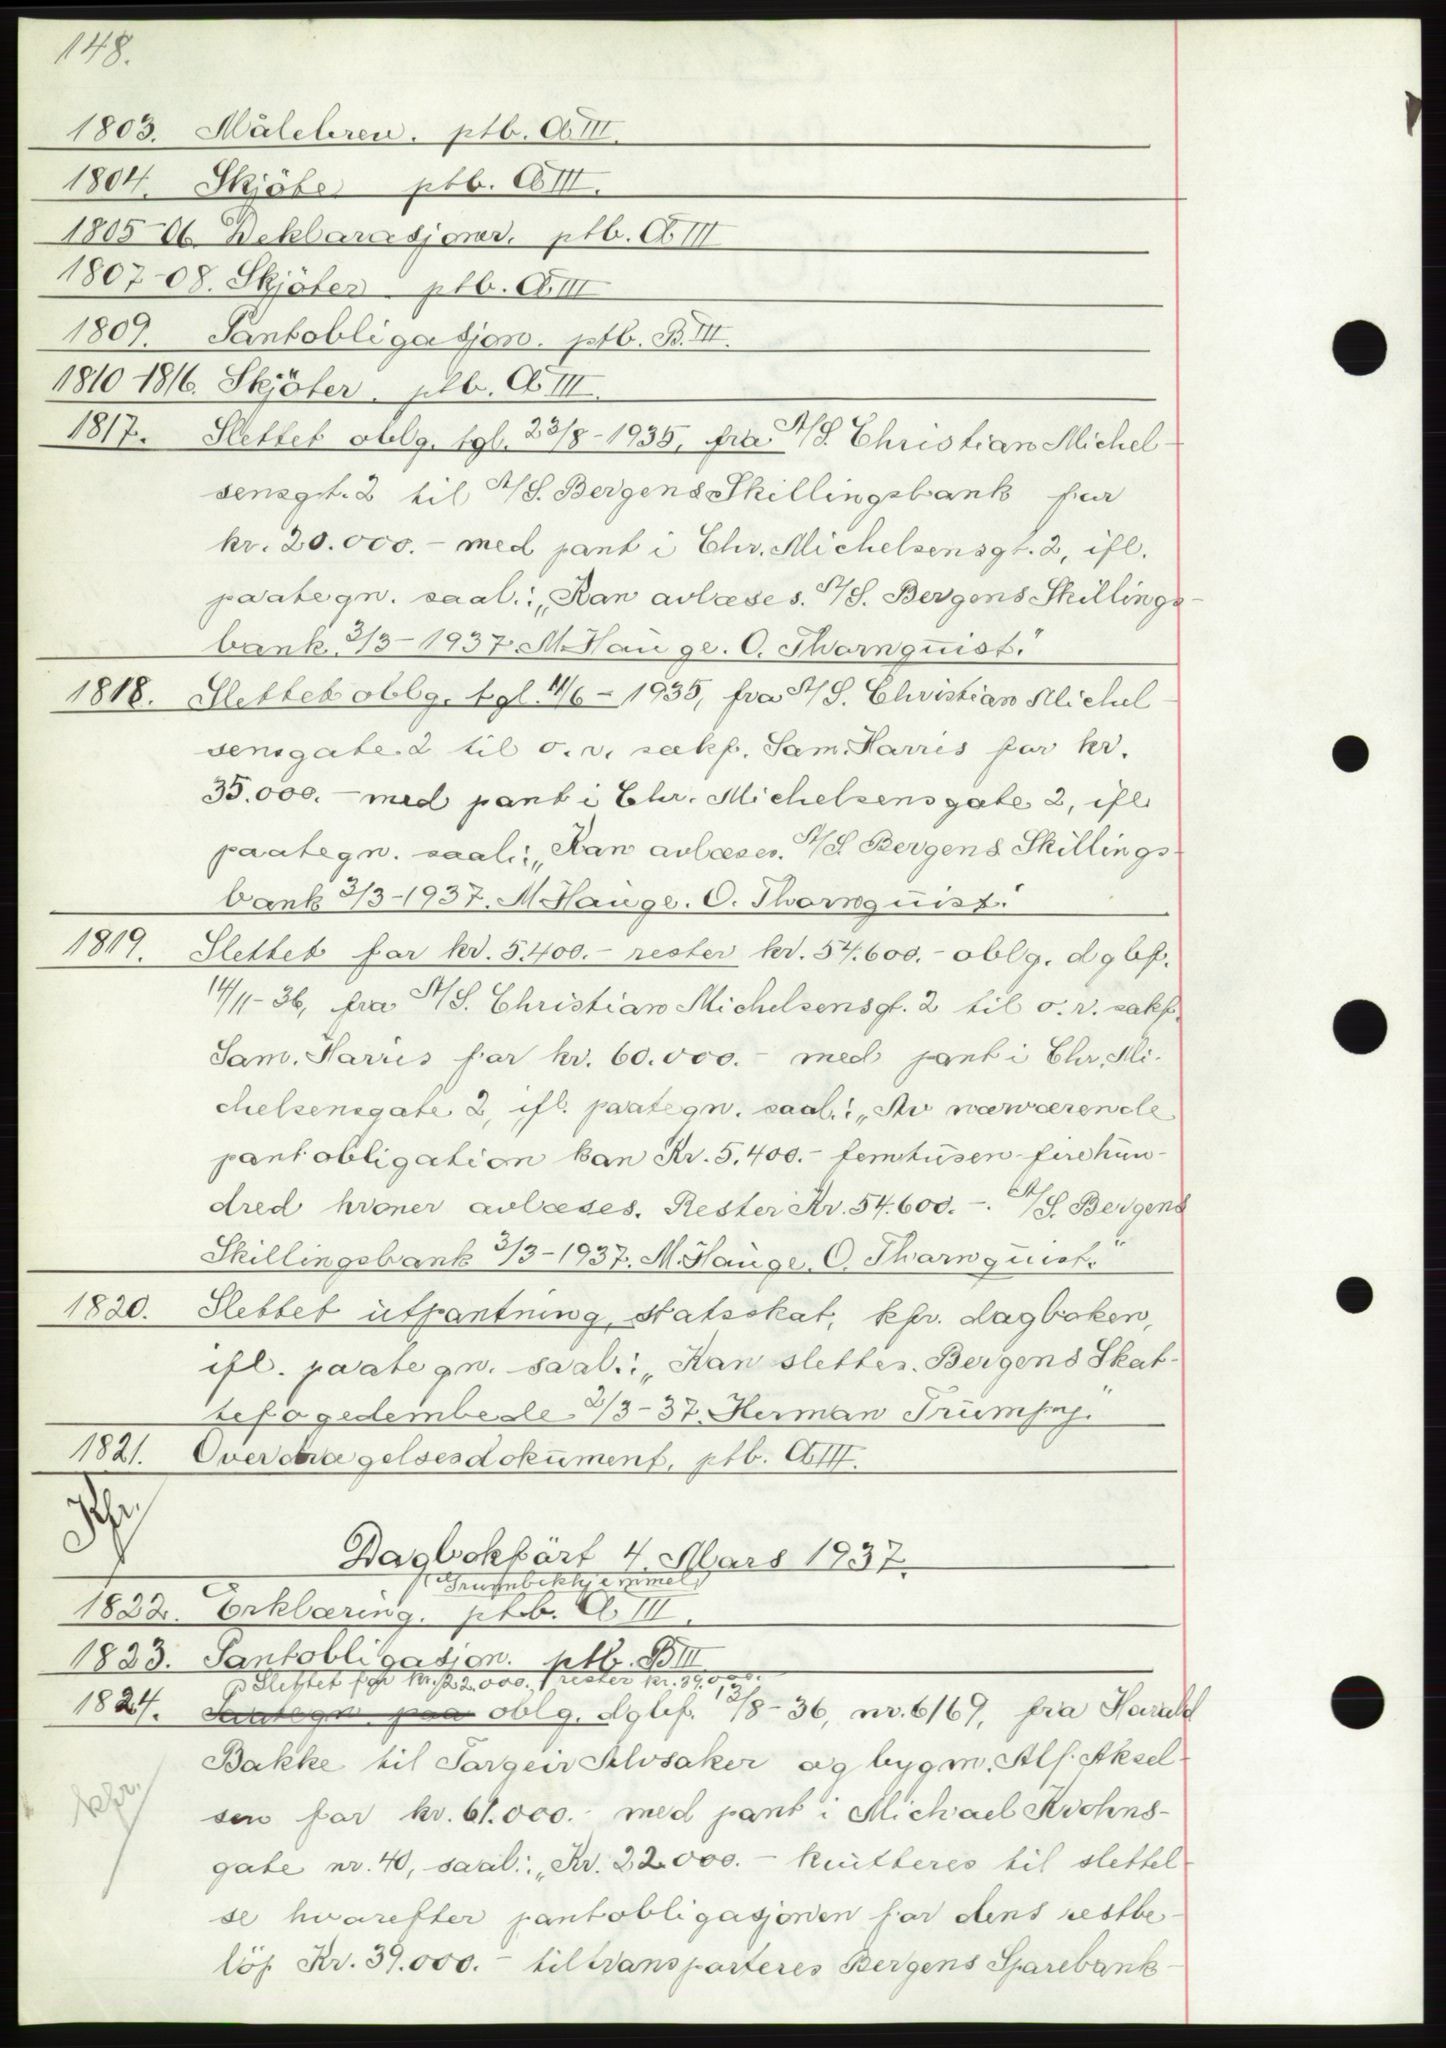 148.
1803. Målebrev. ptb. A III.
1804. Skjöte ptb. A III.
1805-06. Deklarasjoner. ptb. A III
1807-08. Skjöter ptb. A III
1809. Pantobligasjon. ptb. B. III.
1810-1816. Skjöter. ptb. A III.
1817. Slettet oblg. tgl. 23/8-1935, fra A/S. Christian Michel-
sensgt. 2 til A/S. Bergens Skillingsbank for
kr. 20.000.- med pant i Chr. Michelsensgt. 2, ifl.
paategn. saal.: „Kan avlæses. A/S. Bergens Skillings-
bank 3/3-1937. M Hauge. O. Thornquist."
1818. Slettet oblg. tgl. 11/6-1935, fra A/S. Christian Michel-
sensgate 2 til o. r. sakf. Sam. Harris for kr.
35.000.- med pant i Chr. Michelsensgate 2, ifl.
paategn. saal.: „Kan avlæses. A/S Bergens Skillings-
bank 3/3-1937. M Hauge. O. Thornquist."
1819. Slettet for kr. 5.400.- rester kr. 54.600.- oblg. dgbf.
14/11-36, fra A/S. Christian Michelsensgt. 2 til o. r. sakf.
Sam. Harris for kr. 60.000.- med pant i Chr. Mi-
chelsensgate 2, ifl. paategn. saal.: „Av nærværende
pantobligation kan Kr. 5.400.- femtusen-firehun-
dred kroner avlæses. Rester Kr. 54.600.-. A/S. Bergens
Skillingsbank 3/3-1937. M. Hauge. O. Thornquist."
1820. Slettet utpantning, statsskat, kfr. dagboken,
ifl. paategn. saal.: „Kan slettes. Bergens Skat-
tefogedembede 2/3-37. Herman Trumpy."
1821. Overdragelsesdokument, ptb. A III.
Kfr.
Dagbokfört 4. Mars 1937.
(Grunnbokhjemmel)
1822. Erklæring. ptb. A III.
1823. Pantobligasjon. ptb. B III
Slettet for kr. 22.000.- rester kr. 39.000.-
1824. Paategn. paa oblg. dgbf. 13/8-36, nr. 6169, fra Harald
Bakke til Torgeir Alvsaker og bygm. Alf. Aksel-
sen for kr. 61.000.- med pant i Michael Krohns-
kfr.
gate nr. 40, saal.: „Kr. 22.000.- kvitteres til slettel-
se hvorefter pantobligasjonen for dens restbe-
löp Kr. 39.000.- tiltransporteres Bergens Sparebank-